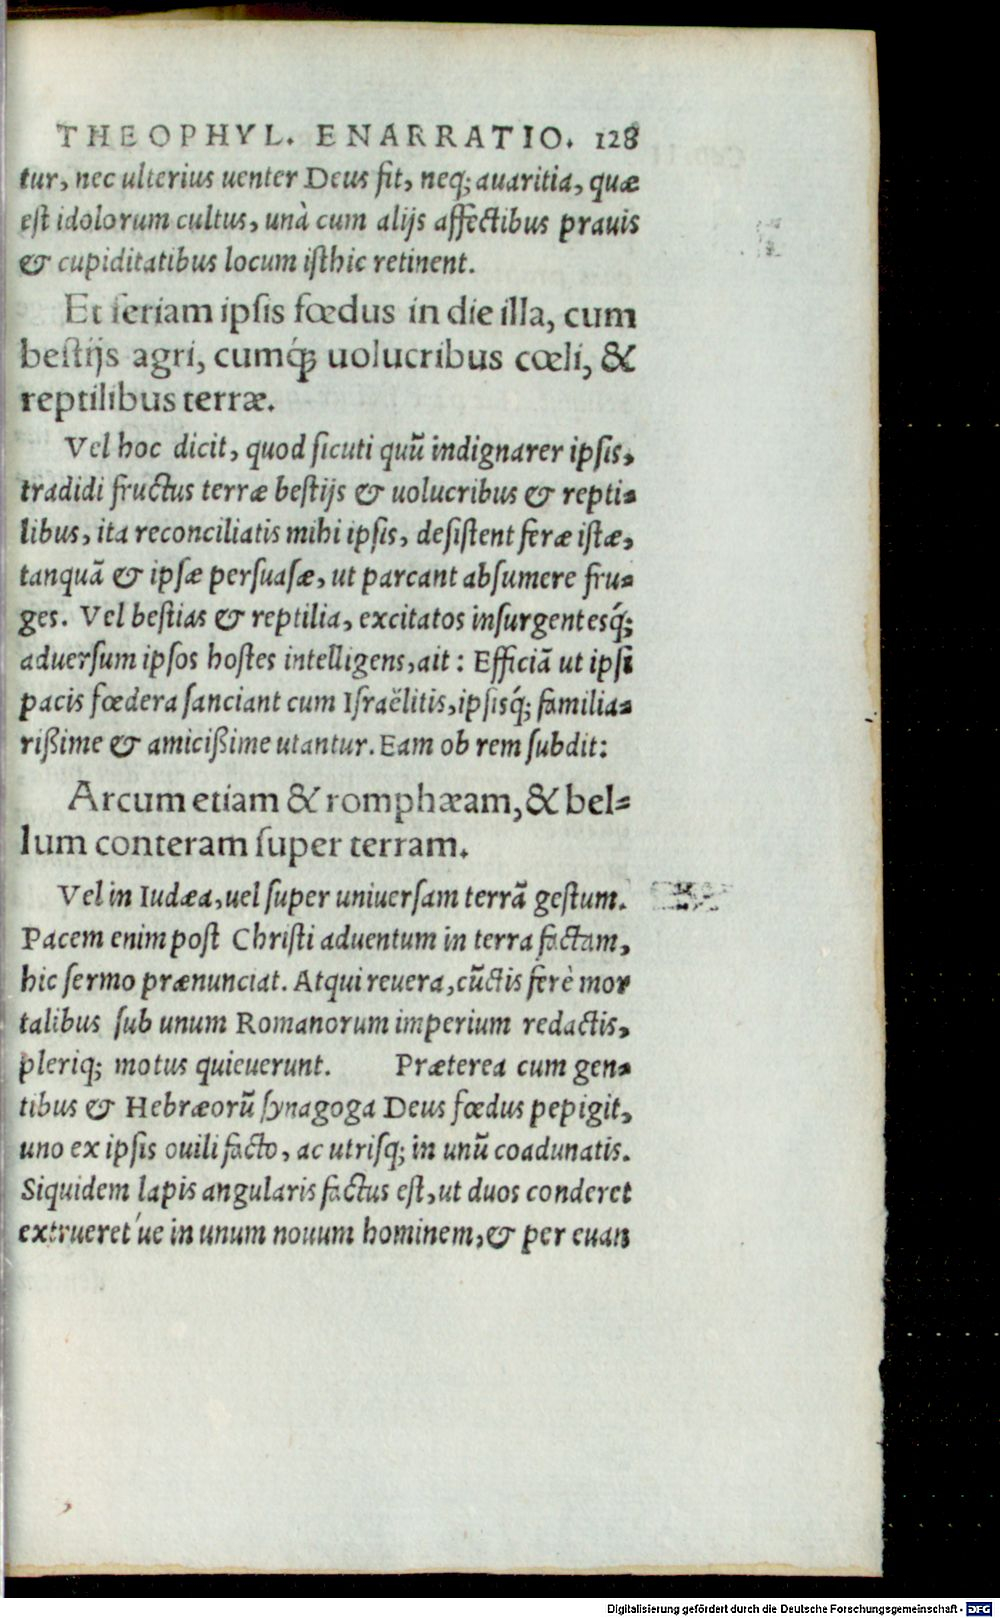 THEOPHYL. ENARRATIO. 128
tur, nec ulterius uenter Deus fit, neq; auaritia, quæ
est idolorum cultus, unà cum alijs affectibus prauis
& cupiditatibus locum isthic retinent.
Et feriam ipsis fœdus in die illa, cum
bestijs agri, cumq́; uolucribus cœli, &
reptilibus terræ.
Vel hoc dicit, quod sicuti quũ indignarer ipsis,
tradidi fructus terræ bestijs & uolucribus & repti-
libus, ita reconciliatis mihi ipsis, desistent feræ istæ,
tanquã & ipsæ persuasæ, ut parcant absumere fru-
ges. Vel bestias & reptilia, excitatos insurgentesq́;
aduersum ipsos hostes intelligens, ait: Efficiã ut ipsi
pacis fœdera sanciant cum Israëlitis, ipsisq́; familia-
rißime & amicißime utantur. Eam ob rem subdit:
Arcum etiam & romphæam, & bel-
lum conteram super terram.
Vel in Iudæa, uel super uniuersam terrã gestum.
Pacem enim post Christi aduentum in terra factam,
hic sermo prænunciat. Atqui reuera, cũctis ferè mor
talibus sub unum Romanorum imperium redactis,
pleriq; motus quieuerunt. Præterea cum gen-
tibus & Hebræorũ synagoga Deus fœdus pepigit,
uno ex ipsis ouili facto, ac utrisq; in unũ coadunatis.
Siquidem lapis angularis factus est, ut duos conderet
extrueret'ue in unum nouum hominem, & per euan
Digitalisierung gefördert durch die Deutsche Forschungsgemeinschaft - DFG